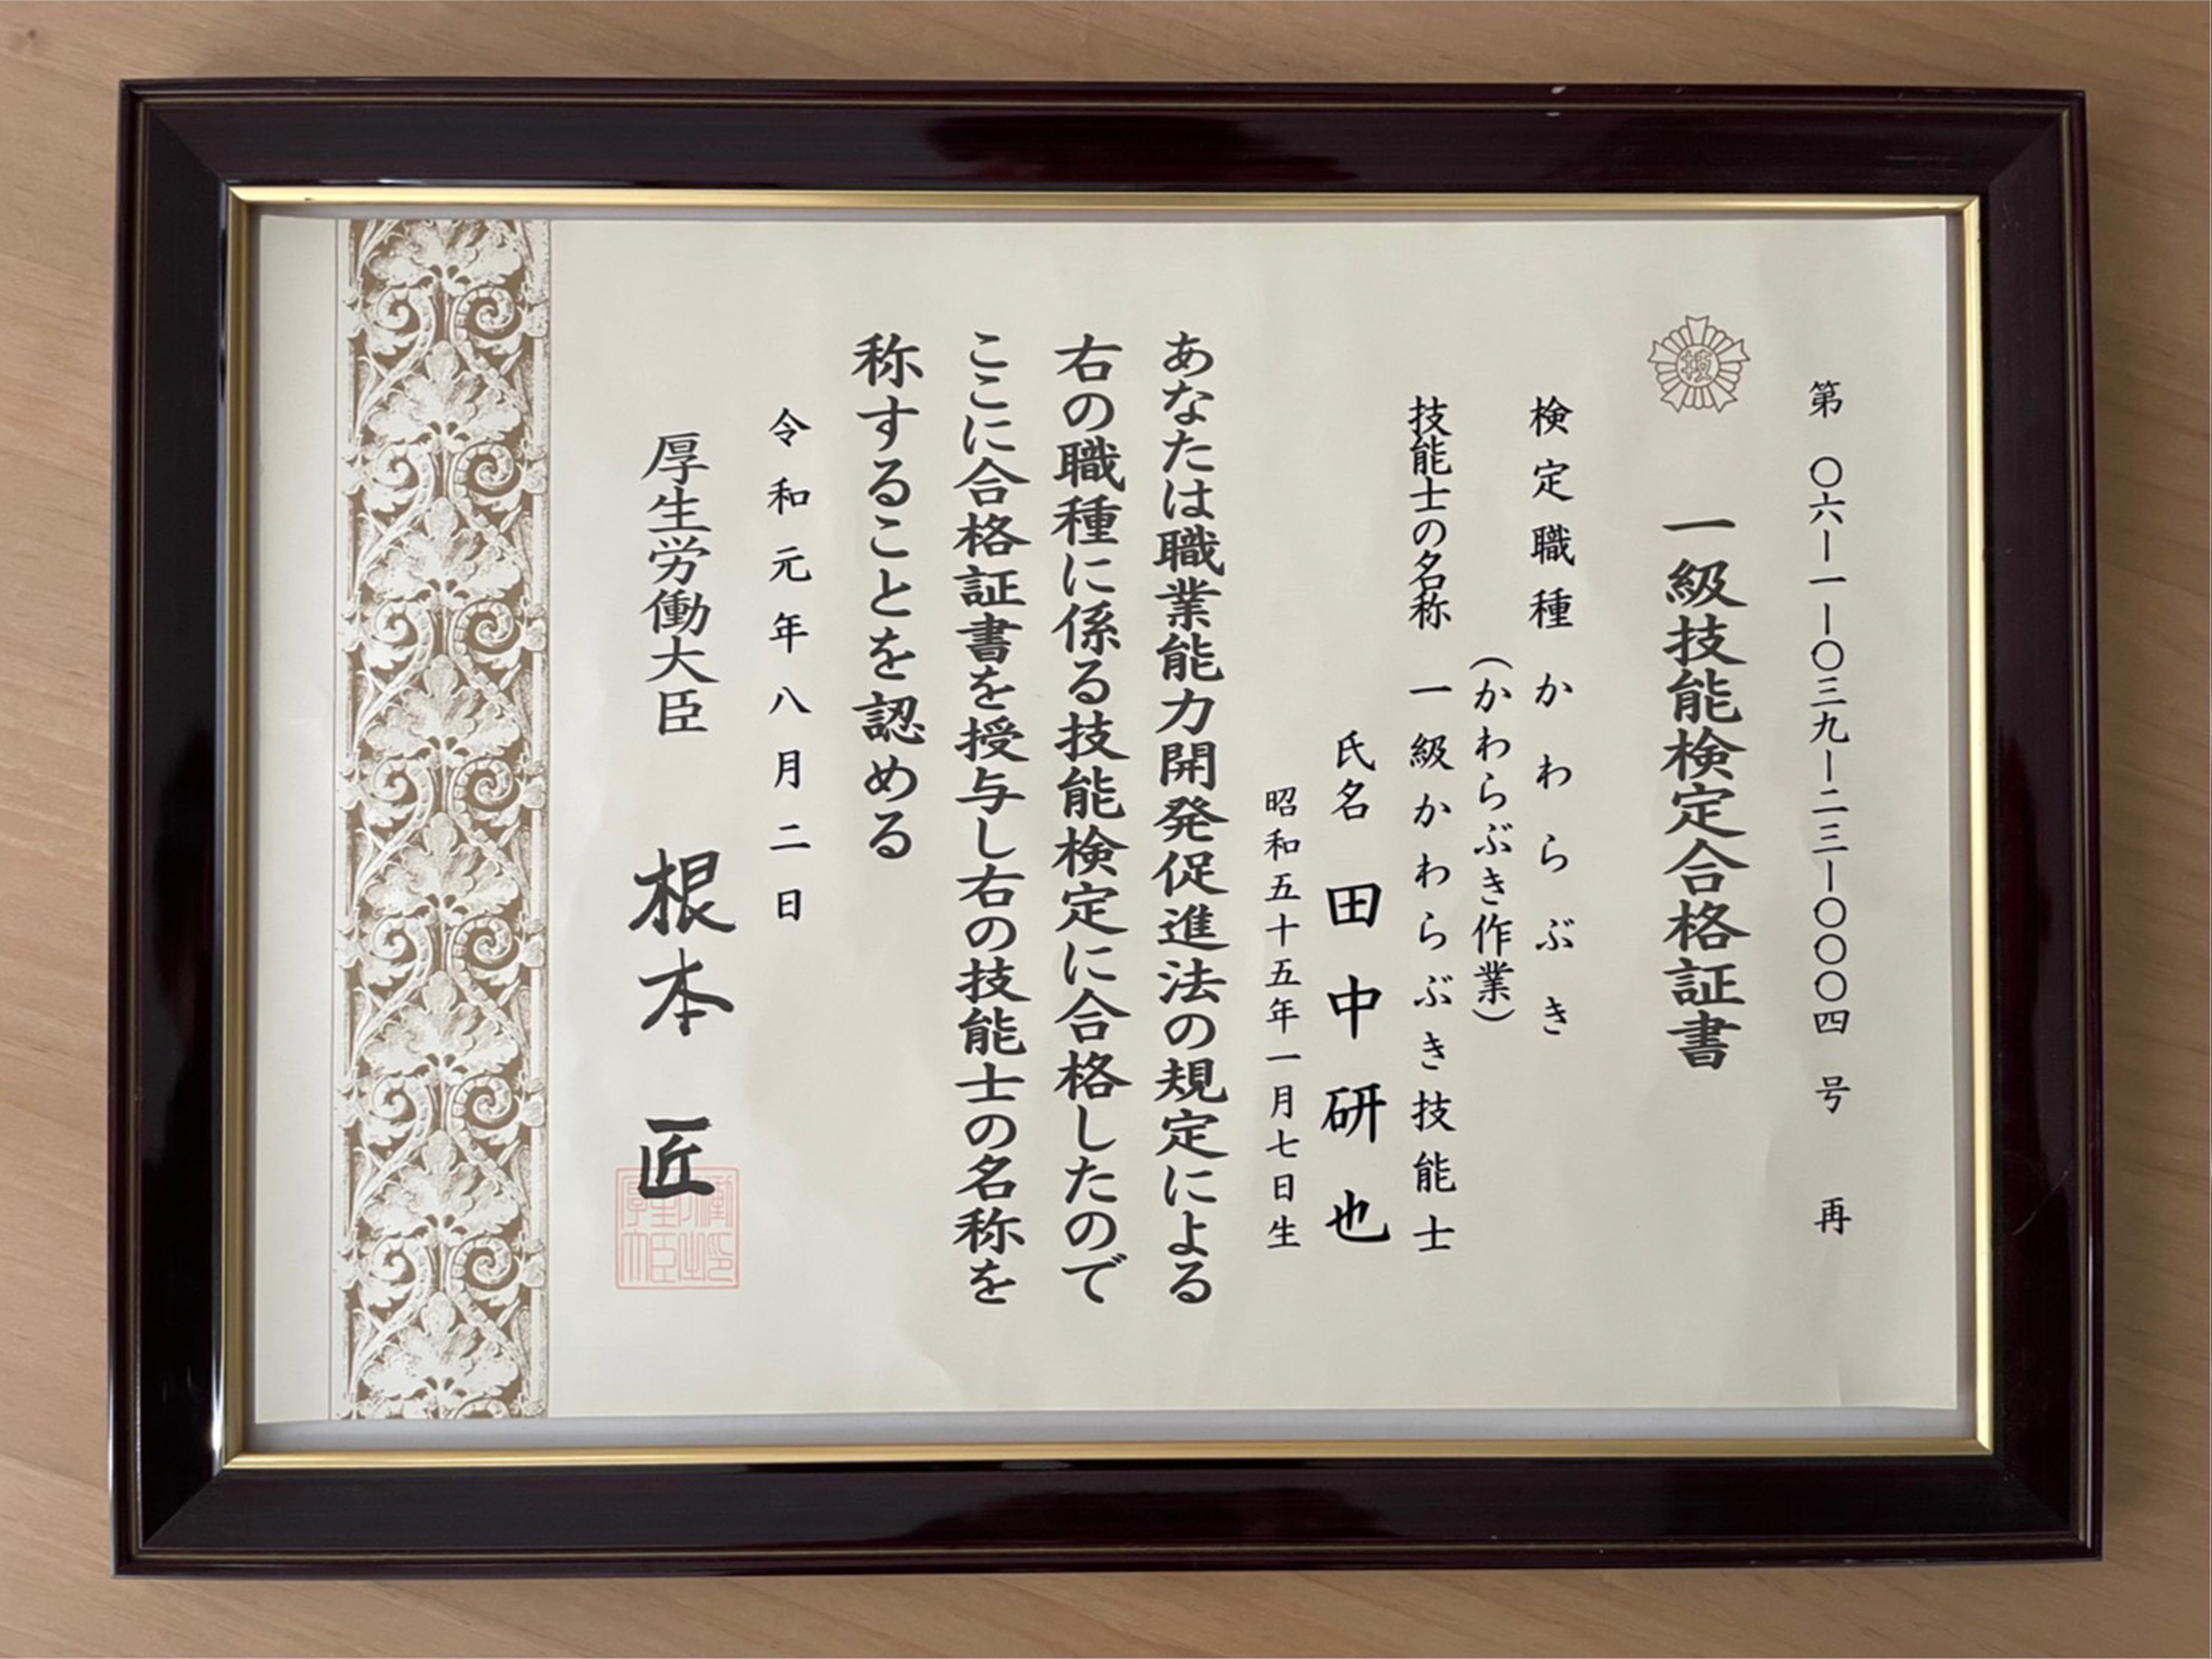 第 〇六―一―〇三九―二三―〇〇〇四 号 再
技
一級技能検定合格証書
検定職種 かわらぶき
(かわらぶき作業)
技能士の名称 一級かわらぶき技能士
氏名 田中研也
昭和五十五年一月七日生
あなたは職業能力開発促進法の規定による
右の職種に係る技能検定に合格したので
ここに合格証書を授与し右の技能士の名称を
称することを認める
令和元年八月二日
厚生労働大臣 根本 匠